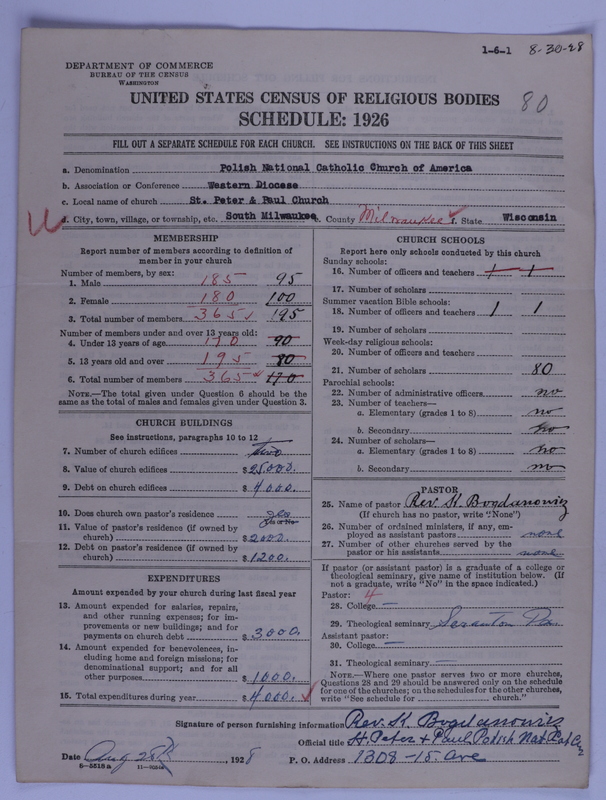 1-6-1 8-30-28
DEPARTMENT OF COMMERCE
BUREAU OF THE CENSUS
WASHINGTON
UNITED STATES CENSUS OF RELIGIOUS BODIES 80
SCHEDULE: 1926
FILL OUT A SEPARATE SCHEDULE FOR EACH CHURCH. SEE INSTRUCTIONS ON THE BACK OF THIS SHEET
a. Denomination Polish National Catholic Church of America
b. Association or Conference Western Diocese
c. Local name of church St. Peter & Paul Church
d. City, town, village, or township, etc. South Milwaukee e. County Milwaukee f. State Wisconsin
MEMBERSHIP
Report number of members according to definition of
member in your church
Number of members, by sex:
1. Male 185 95
2. Female 180 100
3. Total number of members 365 195
Number of members under and over 13 years old:
4. Under 13 years of age 170 90
5. 13 years old and over 195 80
6. Total number of members 365 170
NOTE.—The total given under Question 6 should be the
same as the total of males and females given under Question 3.
CHURCH BUILDINGS
See instructions, paragraphs 10 to 12
7. Number of church edifices two
8. Value of church edifices $25000.
9. Debt on church edifices $4000.
10. Does church own pastor's residence yes
Yes or No
11. Value of pastor's residence (if owned by
church) $2000.
12. Debt on pastor's residence (if owned by
church) $1200.
EXPENDITURES
Amount expended by your church during last fiscal year
13. Amount expended for salaries, repairs,
and other running expenses; for im-
provements or new buildings; and for
payments on church debt $3000.
14. Amount expended for benevolences, in-
cluding home and foreign missions; for
denominational support; and for all
other purposes $1000.
15. Total expenditures during year $4000.
CHURCH SCHOOLS
Report here only schools conducted by this church
Sunday schools:
16. Number of officers and teachers 1 1
17. Number of scholars
Summer vacation Bible schools:
18. Number of officers and teachers 1 1
19. Number of scholars
Week-day religious schools:
20. Number of officers and teachers
21. Number of scholars 80
Parochial schools:
22. Number of administrative officers no
23. Number of teachers—
a. Elementary (grades 1 to 8) no
b. Secondary no
24. Number of scholars—
a. Elementary (grades 1 to 8) no
b. Secondary no
PASTOR
25. Name of pastor Rev. St. Bogdanowicz
(If church has no pastor, write "None")
26. Number of ordained ministers, if any, em-
ployed as assistant pastors none
27. Number of other churches served by the
pastor or his assistants none
If pastor (or assistant pastor) is a graduate of a college or
theological seminary, give name of institution below. (If
not a graduate, write "No" in the space indicated.)
Pastor: 4
28. College —
29. Theological seminary Scranton Pa.
Assistant pastor:
30. College —
31. Theological seminary —
NOTE.—Where one pastor serves two or more churches,
Questions 28 and 29 should be answered only on the schedule
for one of the churches; on the schedules for the other churches,
write "See schedule for church."
Signature of person furnishing information Rev. St. Bogdanowicz
Official title St Peter + Paul Polish Nat Cat Chu
Date Aug 28th, 1928 P. O. Address 1308-15. Ave
8-5518a